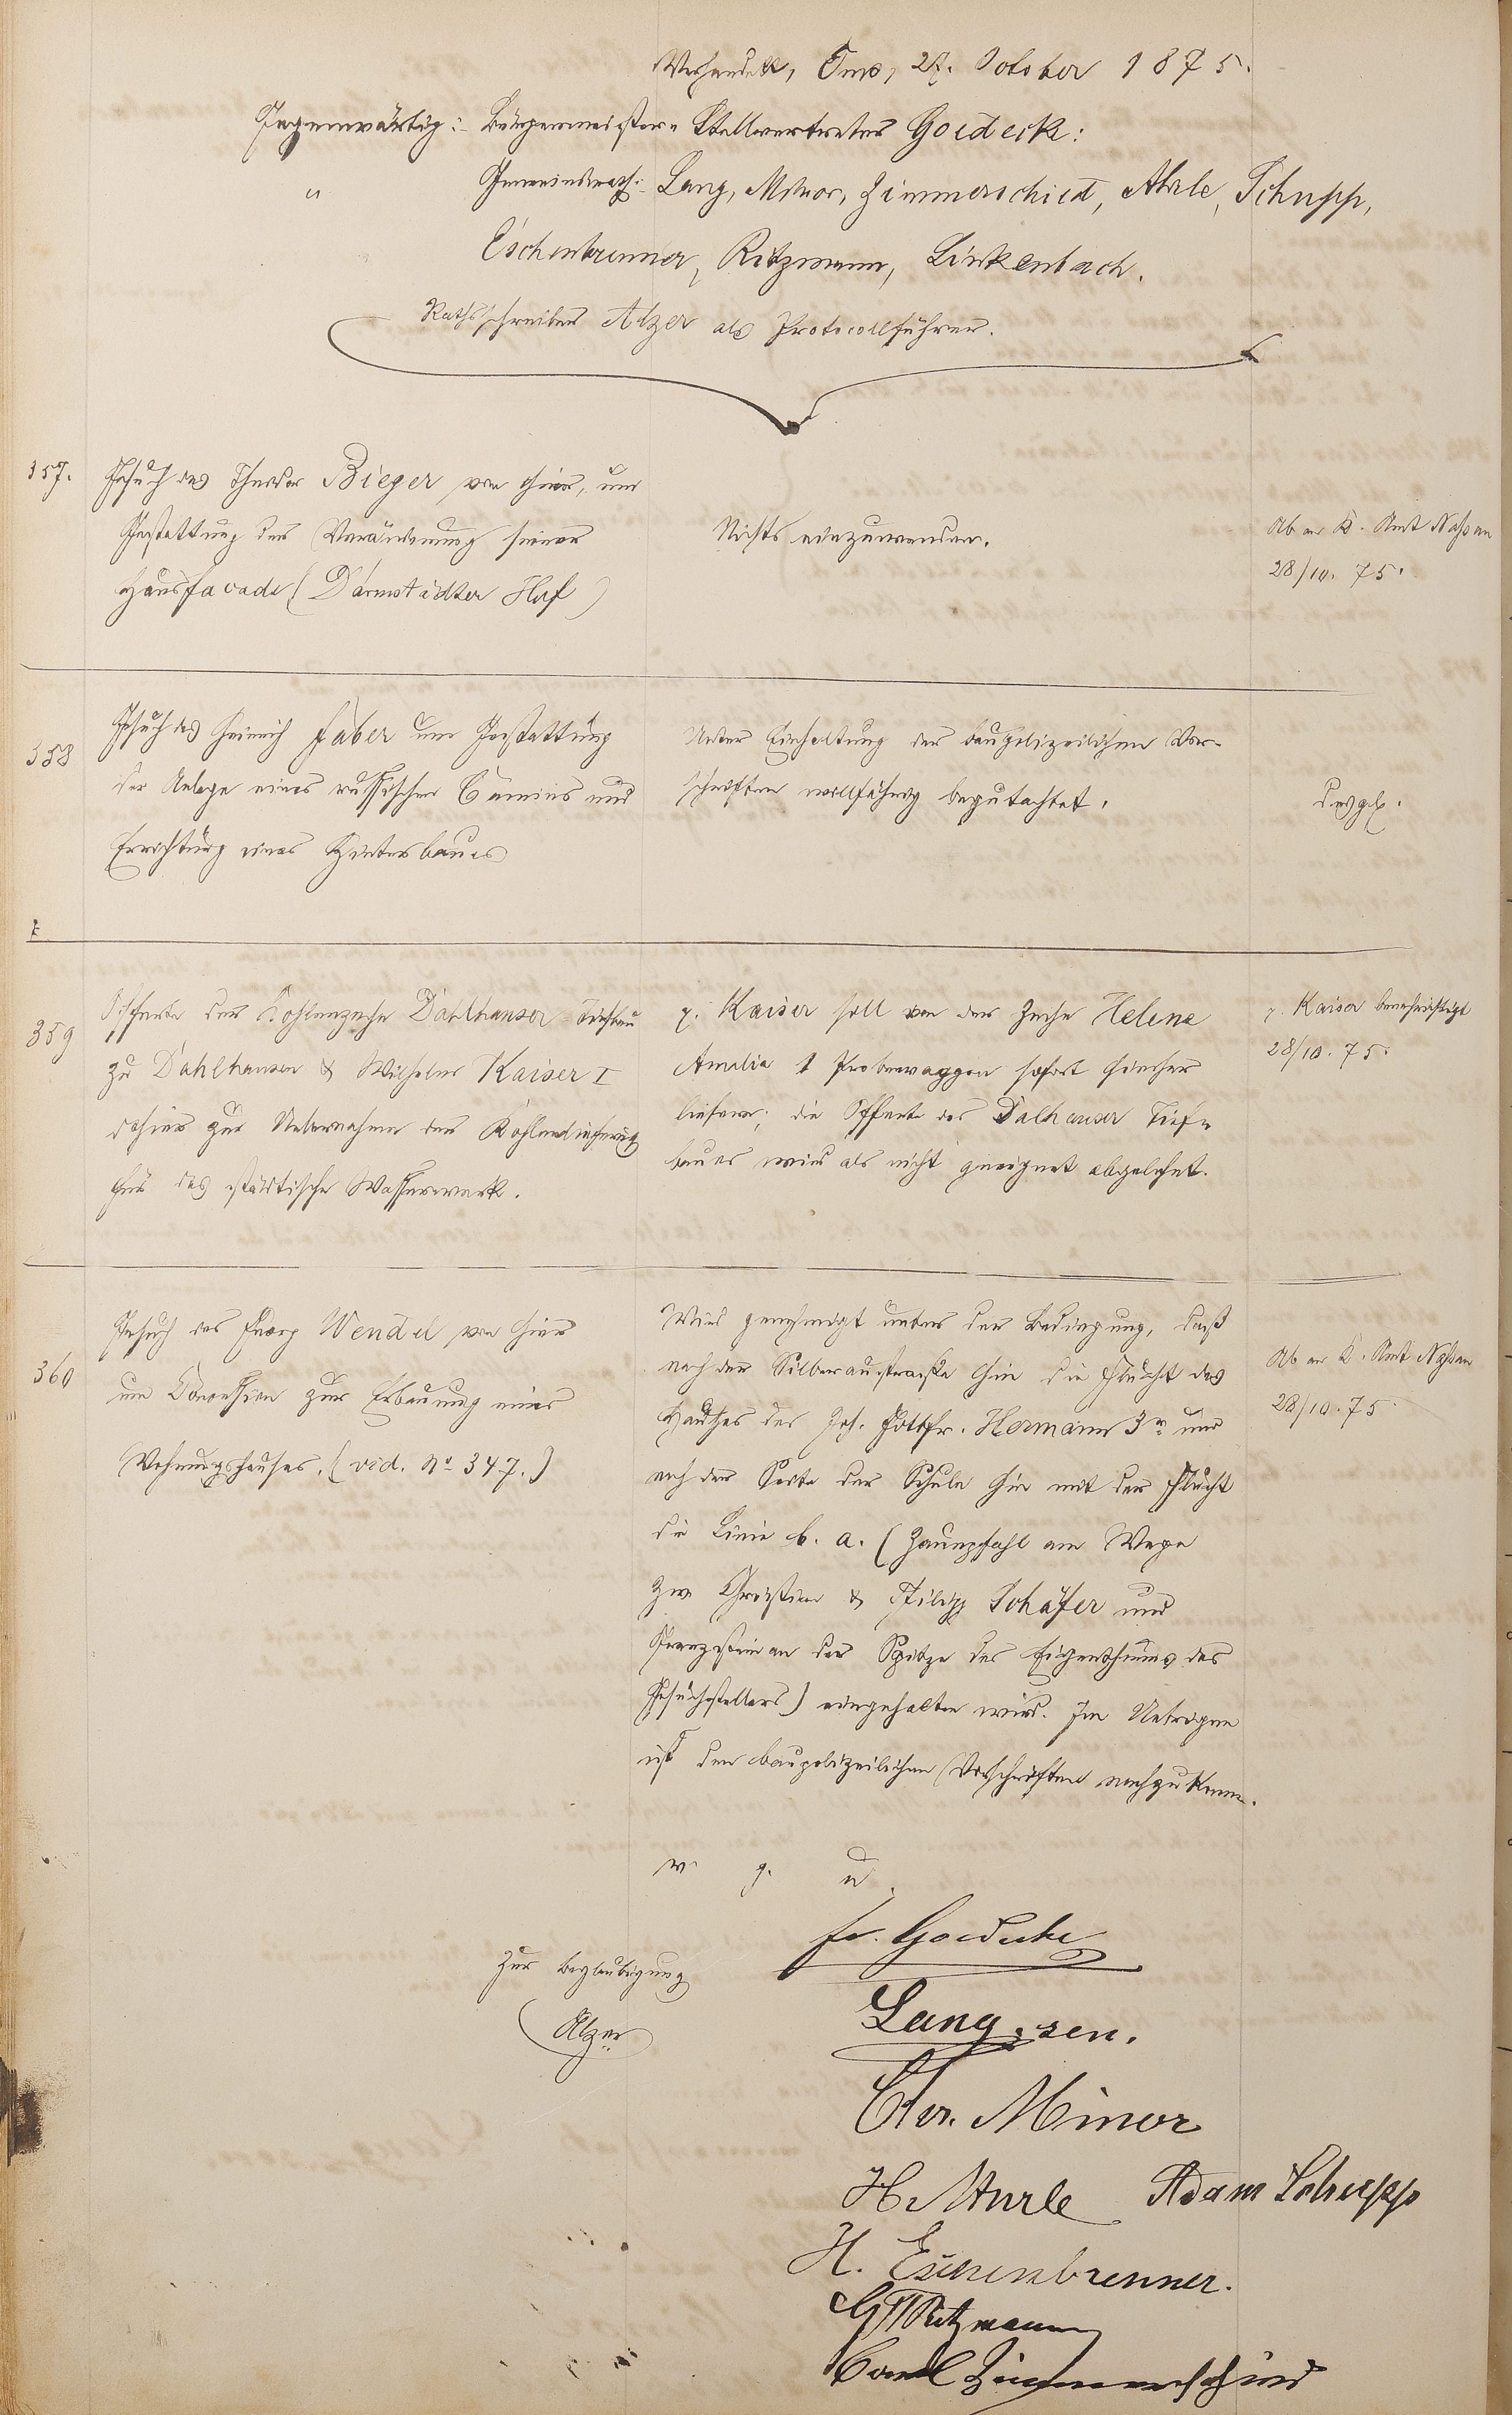 Verhandelt, Ems, 27. October 1875.
Gegenwärtig: Bürgermeister-Stellvertreter Goedecke:
" Gemeinderath: Lang, Minor, Zimmerschied, Ahrle, Schupp,
Eschenbrenner, Ritzmann, Linkenbach.
Rathsschreiber Alzer als Protocollführer.
357.
Gesuch des Theodor Bieger von hier, um
Gestattung der Veränderung seiner
Hausfacade (Darmstädter Hof)
Nichts einzuwenden.
Ab an K. Amt Nassau
28/10. 75.
358
Gesuch des Heinrich Faber um Gestattung
der Anlage eines russischen Camins und
Errichtung eines Hinterbaues
Unter Einhaltung der baupolizeilichen Vor-
schriften willfährig begutachtet.
desgl.
359
Offerte der Kohlenzeche Dahlhauser Tiefbau
zu Dahlhausen & Wilhelm Kaiser I
dahier zur Uebernahme der Kohlenlieferung
für das städtische Wasserwerk.
p. Kaiser soll von der Zeche Helene
Amalia 1 Probewaggon sofort hierher
liefern; die Offerte des Dalhauser Tief-
baues wird als nicht geeignet abgelehnt.
p. Kaiser benachrichtigt
28/10. 75.
360
Gesuch des Georg Wendel von hier
um Concession zur Erbauung eines
Wohnungshauses. (vid. No 347.)
Wird genehmigt unter der Bedingung, daß
nach der Silberaustraße hin die Flucht des
Hauses des Joh. Gottfr. Hermann 3r und
nach der Seite der Schule hin mit der Flucht
die Linie b. a. (Zaunpfahl am Wege
zw. Christian & Philipp Schäfer und
Grenzstein an der Spitze des Eigenthums des
Gesuchstellers) eingehalten wird. Im Uebrigen
ist den baupolizeilichen Vorschriften nachzukomm.
v. g. u.
Fr. Goedecke
Zur Beglaubigung
Alzer
Lang. sen.
Chr. Minor
H. Ahrle Adam Schupp
H. Eschenbrenner.
Ritzmann
Carl Zimmerschied